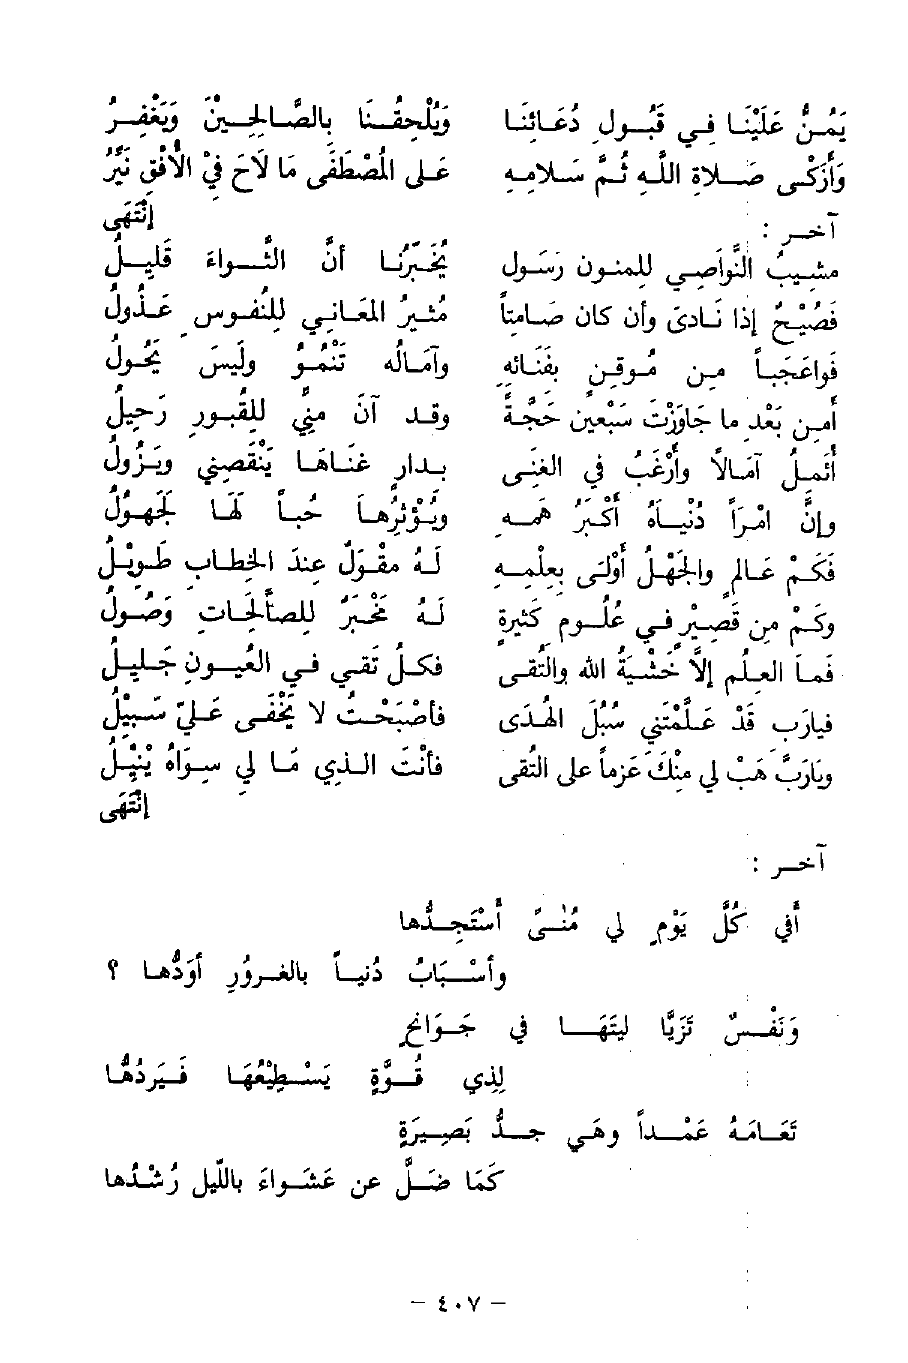 يَمُنُّ عَلَيْنَا فِي قَبُولِ دُعَائِنَا وَيُلْحِقُنَا بِالصَّالِحِيْنَ وَيَغْفِرُ
وَأَزْكَى صَلاَةِ اللَّهِ ثُمَّ سَلاَمِهِ عَلى الْمُصْطَفَى مَا لاَحَ فِيْ الأُفْقِ نَيِّرُ
إنْتَهَى
آخر :
مَشِيبُ النَّواصِي لِلمنونِ رَسُول يُخَبِّرُنَا أَنَّ الثَّواءَ قَلِيلُ
فَصِيْحٌ إذَا نَادَىَ وإن كان صَامتاً مُثيرُ المَعَانِي لِلنفوسِ عَذُولُ
فَواعَجَباً مِن مُوقِنٍ بِفَنَائِهِ وآمَالُه تَنْمُوُ ولَيسَ يَحُولُ
أمِن بَعْدِ ما جَاوَزْتَ سَبْعِينَ حَجَّةً وقد آنَ مِنّي لِلقبور رَحِيلُ
أُؤَمِّلُ آمَالاً وأَرْغَبُ في الغِنَى بدارٍ غِنَاهَا يَنْقَضِي ويَزولُ
وإنَّ امْرأً دُنْيَاهُ أكْبَرُ هَمِّهِ ويُؤْثِرُها حُباً لَهَا لَجَهولُ
فَكَمْ عَالِمٍ والجَهْلُ أَوْلَى بِعِلْمِهِ لَهُ مِقْوَلٌ عِندَ الخِطَابِ طَوِيْلُ
وكَمْ مِن قَصِيْرٍ فِي عُلُومٍ كَثِيرةٍ لَهُ مَخْبَرٌ لِلصالِحَاتِ وَصُولُ
فَمَا العِلْمُ إِلاَّ خَشْيَةُ اللهِ والتُّقَى فَكلُّ تَقِيٍ في العُيونِ جَلِيلُ
فيارَبِ قَدْ عَلَّمْتَنِي سُبُلَ الهُدَى فأصْبَحْتُ لا يَخْفَى عَليَّ سَبِيْلُ
ويَارَبِّ هَبْ لِي مِنْكَ عَزماً على التُّقَى فأَنْتَ الذي مَا لي سِوَاهُ يُنِيْلُ
إنْتَهَى
آخر :
أفِي كُلِّ يَوْمٍ لي مُنْىً أسْتَجِدُّها
وأسْبَابُ دُنياً بالغُرُورِ أوَدُّها ؟
وَنَفْسٌ تَزَيَّا لَيتَهَا في جَوَانِحٍ
لِذِي قُوَّةٍ يَسْطِيْعُهَا فَيَرُدُّهَا
تَعَامَهُ عَمْداً وهْيَ جِدُّ بَصِيرَةٍ
كَمَا ضَلَّ عن عَشْواءَ باللَّيلِ رُشْدُها
– ٤٠٧ –